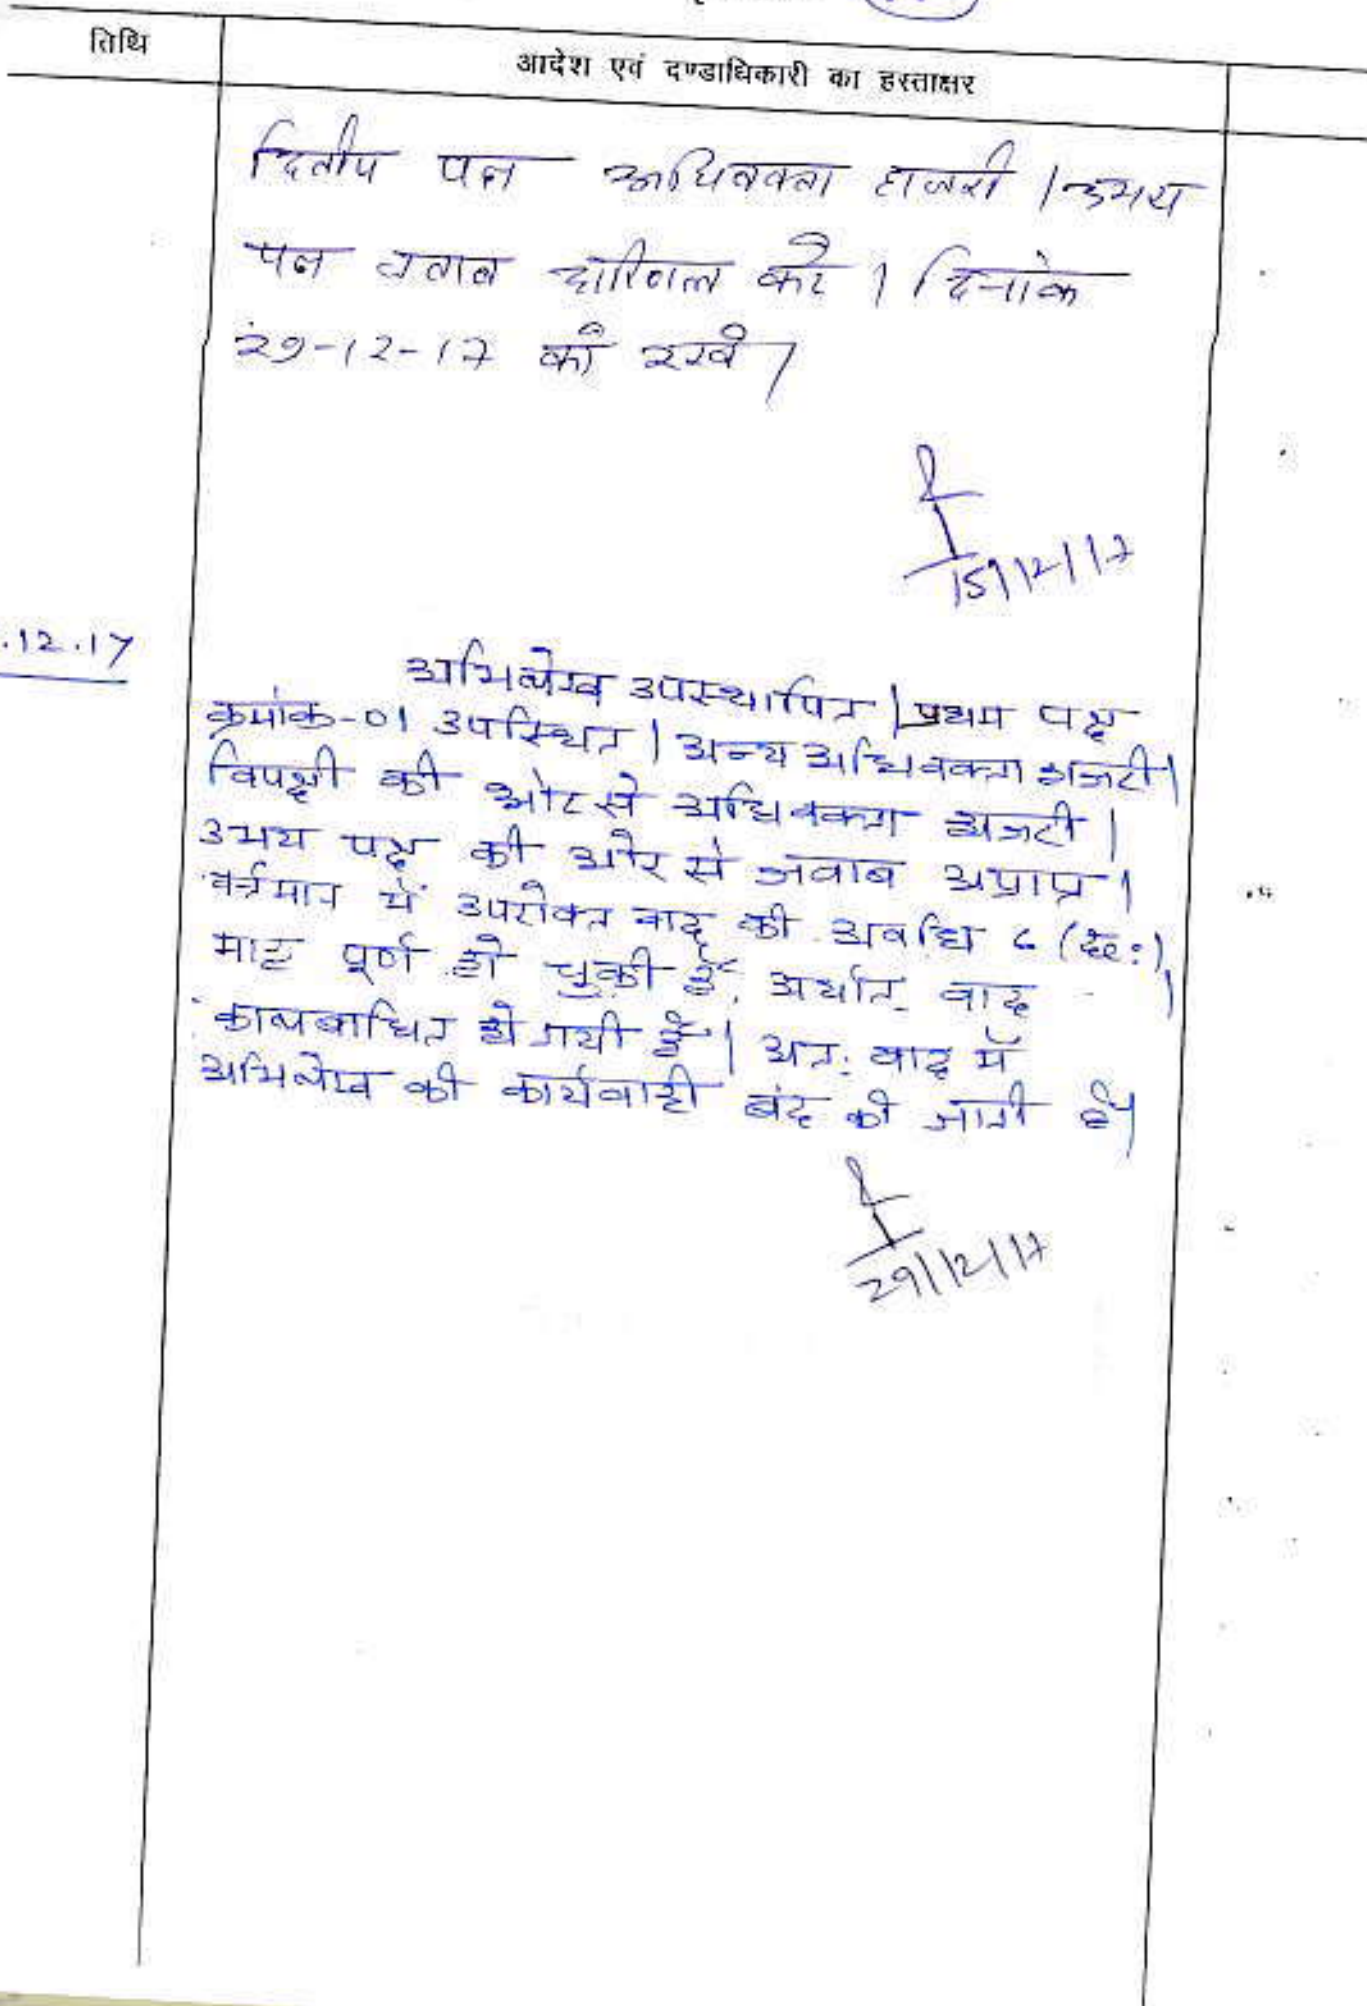 तिथि
आदेश एवं दण्डाधिकारी का हस्ताक्षर
द्वितीय पक्ष अधिवक्ता हाजरी । उभय
पक्ष जवाब दाखिल करें । दिनांक
29-12-17 को रखें ।
15/12/17
.12.17
अभिलेख उपस्थापित । प्रथम पक्ष
क्रमांक-01 उपस्थित । अन्य अधिवक्ता हाजरी ।
विपक्षी की ओर से अधिवक्ता हाजरी ।
उभय पक्ष की ओर से जवाब अप्राप्त ।
वर्त्तमान में उपरोक्त वाद की अवधि 6 (छः)
माह पूर्ण हो चुकी है, अर्थात् वाद
कालबाधित हो गयी है । अतः वाद में
अभिलेख की कार्यवाही बंद की जाती है ।
29/12/17